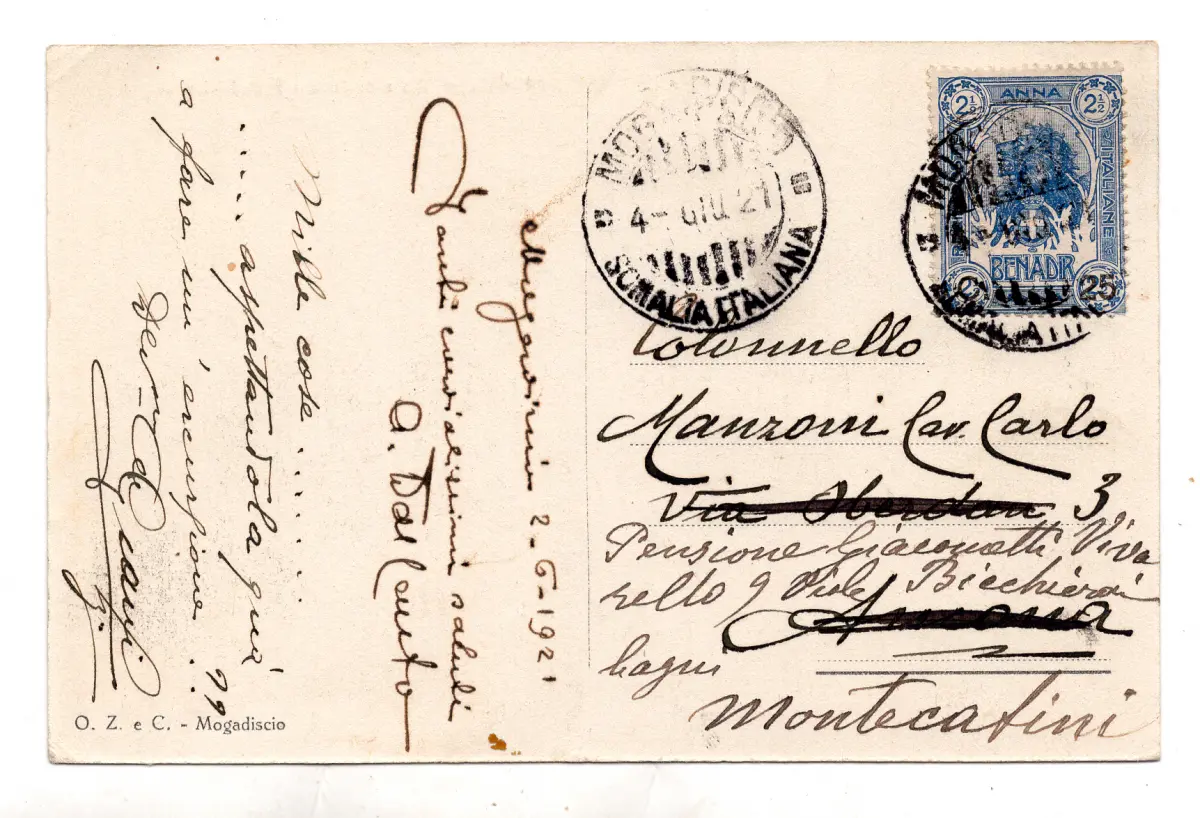 Mille cose ........
..... aspettandola qua
a fare un' escursione ..
O. Z. e C. - Mogadiscio
Mogadiscio 2-6-1921
Tanti cordialissimi saluti
MOGADISCIO
4 - GIU. 21
SOMALIA ITALIANA
2½ ANNA 2½
POSTE ITALIANE
BENADIR
C. 25
MOGADISCIO
4 - GIU
SOMALIA ITALIANA
Colonnello
Manzoni Cav. Carlo
Via Oberdan 3
Pensione Giacometti, Viva
rello 9 Viale Bicchierai
Ancona
bagni
Montecatini